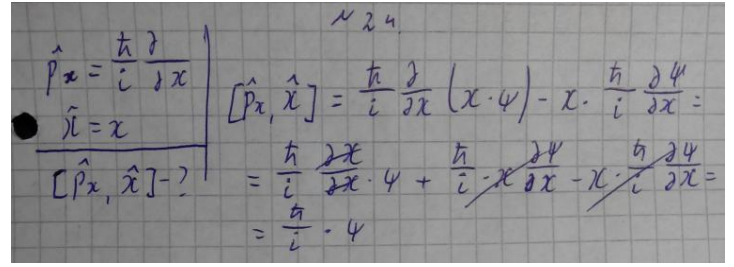 N 24.
p̂ₓ = ħ/i ∂/∂x
x̂ = x
[p̂ₓ, x̂] - ?
[p̂ₓ, x̂] = ħ/i ∂/∂x (x · ψ) - x · ħ/i ∂ψ/∂x =
= ħ/i ∂x/∂x · ψ + ħ/i · x ∂ψ/∂x - x · ħ/i ∂ψ/∂x =
= ħ/i · ψ